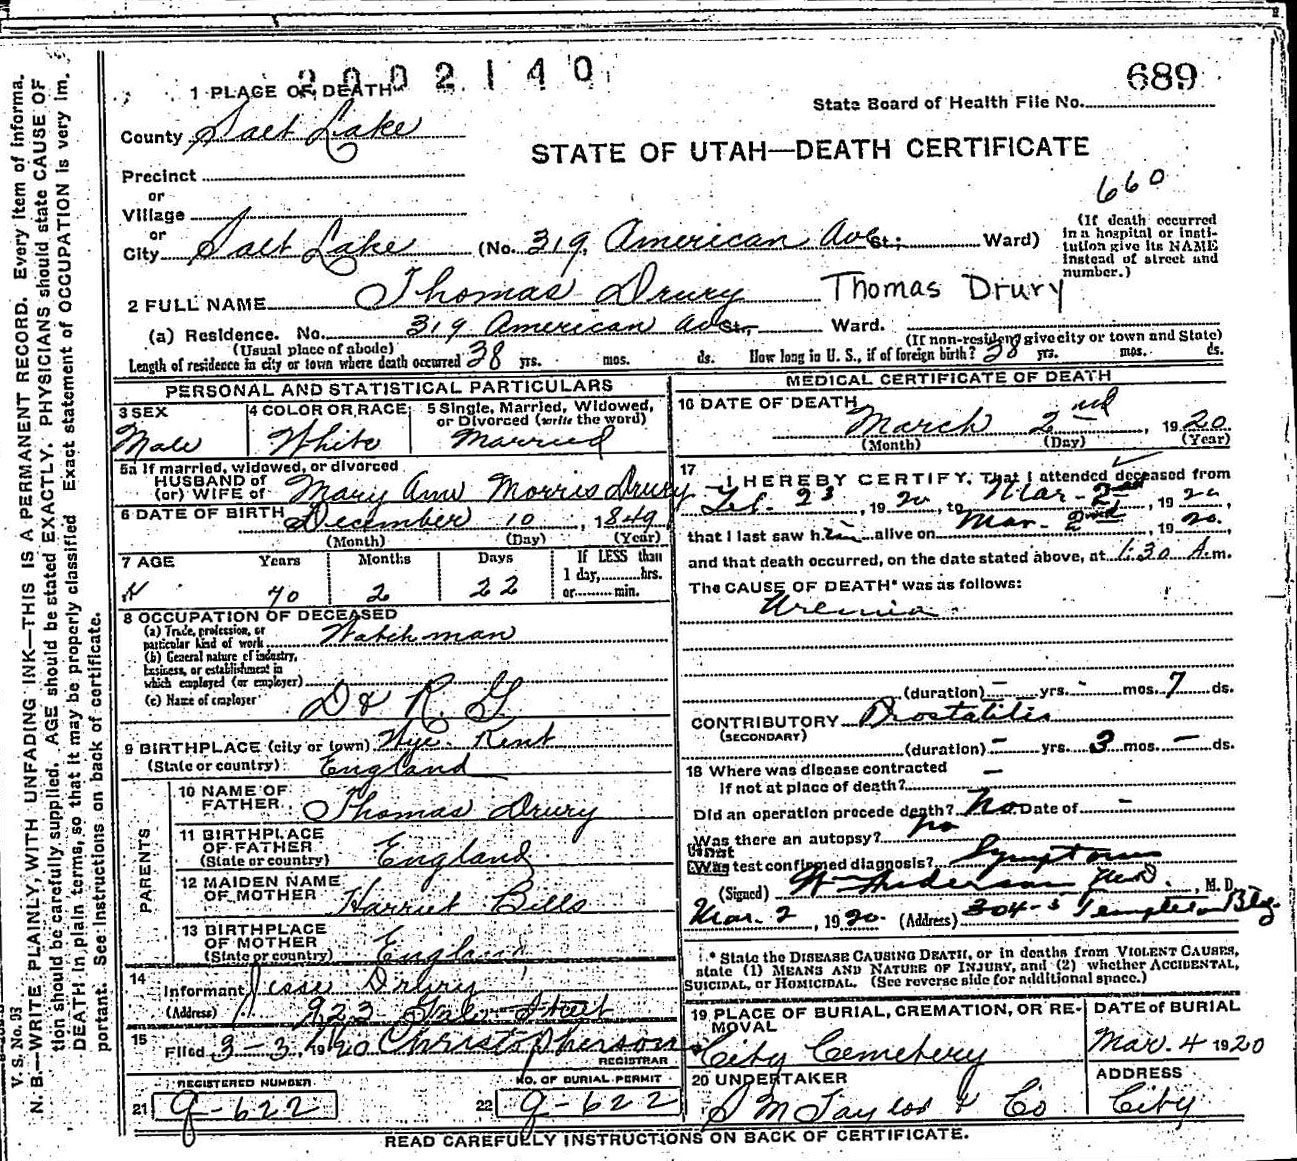 2002140
689
1 PLACE OF DEATH
State Board of Health File No.
County Salt Lake
STATE OF UTAH—DEATH CERTIFICATE
Precinct
or
660
Village
or
City Salt Lake (No. 319 American Ave St.; Ward)
(If death occurred in a hospital or institution give its NAME instead of street and number.)
2 FULL NAME Thomas Drury Thomas Drury
(a) Residence. No. 319 American Ave St., Ward.
(Usual place of abode) (If non-resident give city or town and State)
Length of residence in city or town where death occurred 38 yrs. mos. ds. How long in U. S., if of foreign birth? 38 yrs. mos. ds.
PERSONAL AND STATISTICAL PARTICULARS
3 SEX 4 COLOR OR RACE 5 Single, Married, Widowed, or Divorced (write the word)
Male White Married
5a If married, widowed, or divorced
HUSBAND of
(or) WIFE of Mary Ann Morris Drury
6 DATE OF BIRTH December 10, 1849
(Month) (Day) (Year)
7 AGE Years Months Days If LESS than
1 day, hrs.
70 2 22 or min.
8 OCCUPATION OF DECEASED
(a) Trade, profession, or
particular kind of work Watchman
(b) General nature of industry,
business, or establishment in
which employed (or employer)
(c) Name of employer D & R. G.
9 BIRTHPLACE (city or town) Wye. Kent
(State or country) England
PARENTS
10 NAME OF
FATHER Thomas Drury
11 BIRTHPLACE
OF FATHER
(State or country) England
12 MAIDEN NAME
OF MOTHER Harriet Bills
13 BIRTHPLACE
OF MOTHER
(State or country) England
14
Informant Jesse Drury
(Address) 922 Street
15
Filed 3-3, 1920 Christopherson
REGISTRAR
REGISTERED NUMBER NO. OF BURIAL PERMIT
21 g-622 22 g-622
MEDICAL CERTIFICATE OF DEATH
16 DATE OF DEATH
March 2nd, 1920
(Month) (Day) (Year)
17
I HEREBY CERTIFY, That I attended deceased from
Feb. 23, 1920, to Mar. 2nd, 1920,
that I last saw him alive on Mar. 2nd, 1920.
and that death occurred, on the date stated above, at 1:30 A.m.
The CAUSE OF DEATH* was as follows:
Uremia
(duration) — yrs. - mos. 7 ds.
CONTRIBUTORY Prostatitis
(SECONDARY)
(duration) — yrs. 3 mos. — ds.
18 Where was disease contracted
If not at place of death? —
Did an operation precede death? No Date of -
Was there an autopsy? no
What test confirmed diagnosis? Symptoms
(Signed) Wm Anderson M.D., M. D.
Mar. 2, 1920 (Address) 304-5 Templeton Bldg
* State the DISEASE CAUSING DEATH, or in deaths from VIOLENT CAUSES,
state (1) MEANS AND NATURE OF INJURY, and (2) whether ACCIDENTAL,
SUICIDAL, or HOMICIDAL. (See reverse side for additional space.)
19 PLACE OF BURIAL, CREMATION, OR RE-
MOVAL
City Cemetery
DATE of BURIAL
Mar. 4 1920
20 UNDERTAKER
S M Taylor & Co
ADDRESS
City
READ CAREFULLY INSTRUCTIONS ON BACK OF CERTIFICATE.
V. S. No. 93
N. B.—WRITE PLAINLY, WITH UNFADING INK—THIS IS A PERMANENT RECORD. Every item of informa-
tion should be carefully supplied. AGE should be stated EXACTLY. PHYSICIANS should state CAUSE OF
DEATH in plain terms, so that it may be properly classified. Exact statement of OCCUPATION is very im-
portant. See instructions on back of certificate.